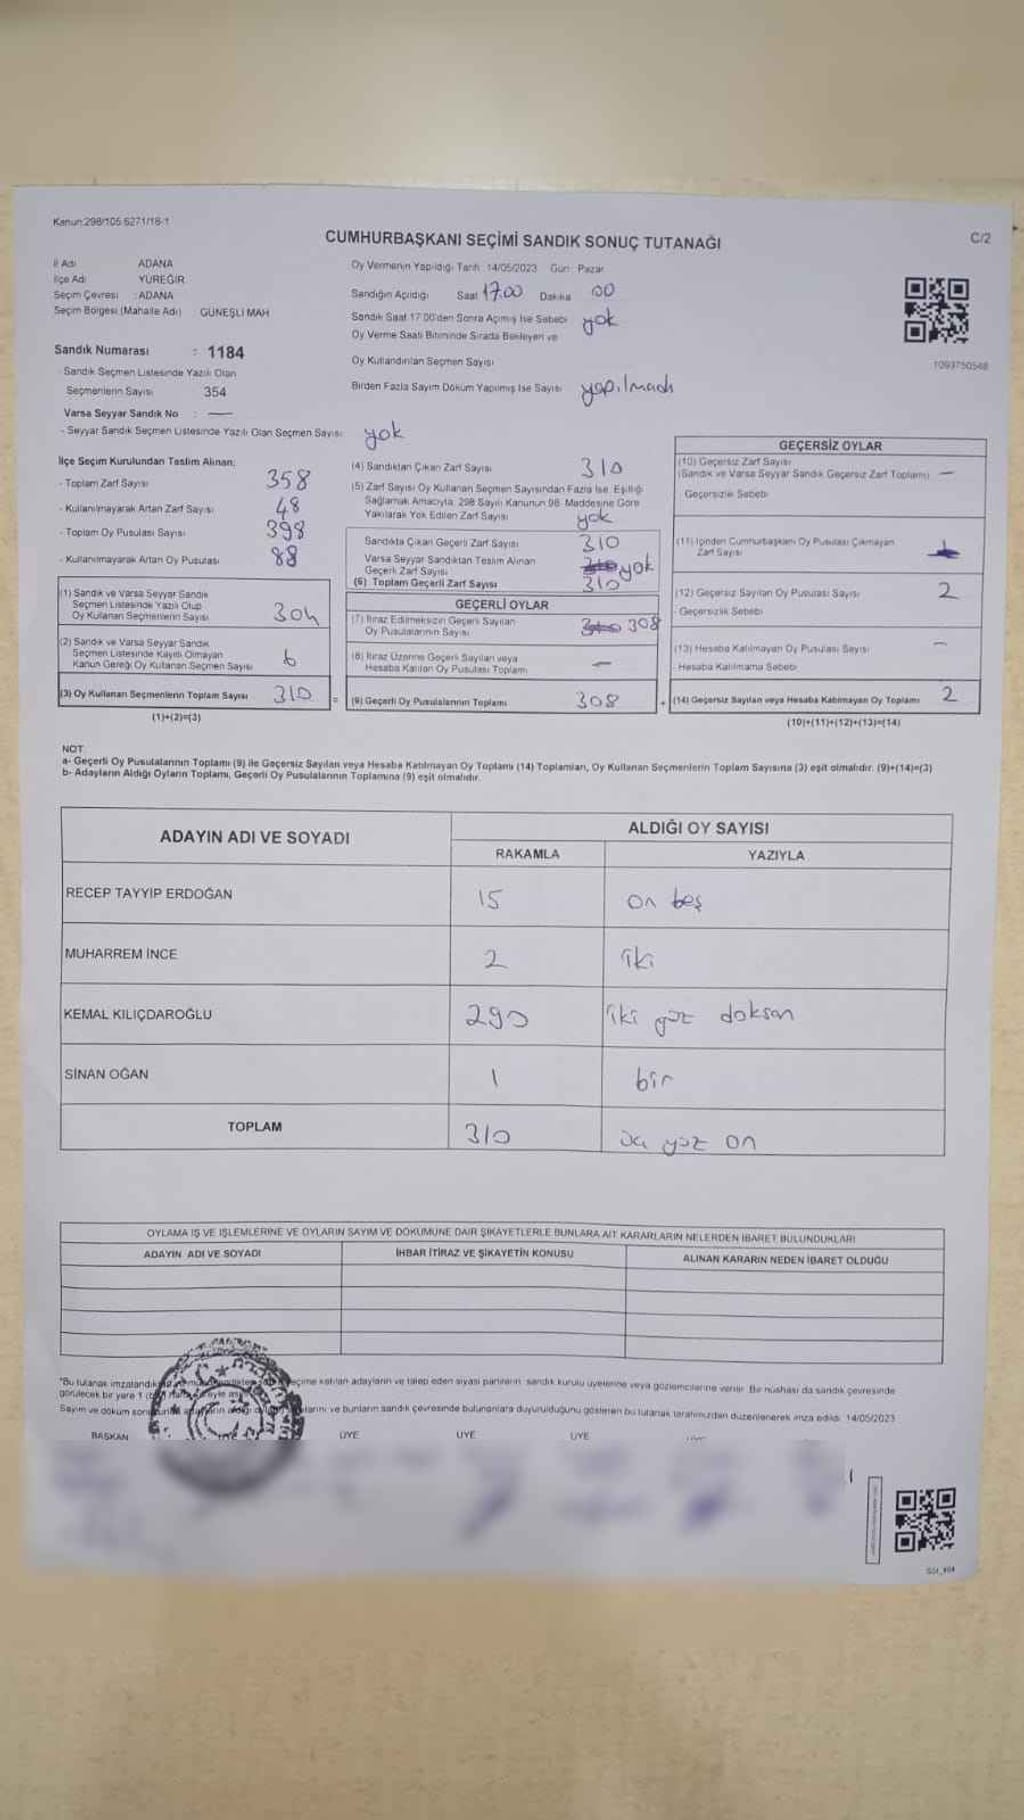 Kanun:298/105 6271/18-1
CUMHURBAŞKANI SEÇİMİ SANDIK SONUÇ TUTANAĞI
C/2
İl Adı ADANA
İlçe Adı YÜREĞİR
Seçim Çevresi : ADANA
Seçim Bölgesi (Mahalle Adı) GÜNEŞLİ MAH
Oy Vermenin Yapıldığı Tarih : 14/05/2023 Gün : Pazar
Sandığın Açıldığı Saat 17.00 Dakika 00
Sandık Saat 17:00'den Sonra Açılmış İse Sebebi yok
Oy Verme Saati Bitiminde Sırada Bekleyen ve
Oy Kullandırılan Seçmen Sayısı
Birden Fazla Sayım Döküm Yapılmış İse Sayısı yapılmadı
1093750548
Sandık Numarası : 1184
- Sandık Seçmen Listesinde Yazılı Olan
Seçmenlerin Sayısı 354
Varsa Seyyar Sandık No : —
- Seyyar Sandık Seçmen Listesinde Yazılı Olan Seçmen Sayısı: yok
İlçe Seçim Kurulundan Teslim Alınan;
- Toplam Zarf Sayısı 358
- Kullanılmayarak Artan Zarf Sayısı 48
- Toplam Oy Pusulası Sayısı 398
- Kullanılmayarak Artan Oy Pusulası 88
(1) Sandık ve Varsa Seyyar Sandık
Seçmen Listesinde Yazılı Olup
Oy Kullanan Seçmenlerin Sayısı 304
(2) Sandık ve Varsa Seyyar Sandık
Seçmen Listesinde Kayıtlı Olmayan
Kanun Gereği Oy Kullanan Seçmen Sayısı 6
(3) Oy Kullanan Seçmenlerin Toplam Sayısı 310
(1)+(2)=(3)
(4) Sandıktan Çıkan Zarf Sayısı 310
(5) Zarf Sayısı Oy Kullanan Seçmen Sayısından Fazla İse, Eşitliği
Sağlamak Amacıyla, 298 Sayılı Kanunun 98. Maddesine Göre
Yakılarak Yok Edilen Zarf Sayısı yok
Sandıkta Çıkan Geçerli Zarf Sayısı 310
Varsa Seyyar Sandıktan Teslim Alınan
Geçerli Zarf Sayısı yok
(6) Toplam Geçerli Zarf Sayısı 310
GEÇERLİ OYLAR
(7) İtiraz Edilmeksizin Geçerli Sayılan
Oy Pusulalarının Sayısı 308
(8) İtiraz Üzerine Geçerli Sayılan veya
Hesaba Katılan Oy Pusulası Toplamı —
= (9) Geçerli Oy Pusulalarının Toplamı 308
GEÇERSİZ OYLAR
(10) Geçersiz Zarf Sayısı
(Sandık ve Varsa Seyyar Sandık Geçersiz Zarf Toplamı) —
Geçersizlik Sebebi
(11) İçinden Cumhurbaşkanı Oy Pusulası Çıkmayan
Zarf Sayısı
(12) Geçersiz Sayılan Oy Pusulası Sayısı 2
- Geçersizlik Sebebi
(13) Hesaba Katılmayan Oy Pusulası Sayısı —
- Hesaba Katılmama Sebebi
+ (14) Geçersiz Sayılan veya Hesaba Katılmayan Oy Toplamı 2
(10)+(11)+(12)+(13)=(14)
NOT:
a- Geçerli Oy Pusulalarının Toplamı (9) ile Geçersiz Sayılan veya Hesaba Katılmayan Oy Toplamı (14) Toplamları, Oy Kullanan Seçmenlerin Toplam Sayısına (3) eşit olmalıdır. (9)+(14)=(3)
b- Adayların Aldığı Oyların Toplamı, Geçerli Oy Pusulalarının Toplamına (9) eşit olmalıdır.
ADAYIN ADI VE SOYADI ALDIĞI OY SAYISI
RAKAMLA YAZIYLA
RECEP TAYYIP ERDOĞAN 15 on beş
MUHARREM İNCE 2 iki
KEMAL KILIÇDAROĞLU 290 iki yüz doksan
SİNAN OĞAN 1 bir
TOPLAM 310 yüz on
OYLAMA İŞ VE İŞLEMLERİNE VE OYLARIN SAYIM VE DÖKÜMÜNE DAİR ŞİKAYETLERLE BUNLARA AİT KARARLARIN NELERDEN İBARET BULUNDUKLARI
ADAYIN ADI VE SOYADI İHBAR İTİRAZ VE ŞİKAYETİN KONUSU ALINAN KARARIN NEDEN İBARET OLDUĞU
"Bu tutanak imzalandıktan seçime katılan adayların ve talep eden siyasi partilerin sandık kurulu üyelerine veya gözlemcilerine verilir. Bir nüshası da sandık çevresinde
görülecek bir yere 1
Sayım ve döküm ve bunların sandık çevresinde bulunanlara duyurulduğunu gösteren bu tutanak tarafımızdan düzenlenerek imza edildi. 14/05/2023
BAŞKAN ÜYE ÜYE ÜYE